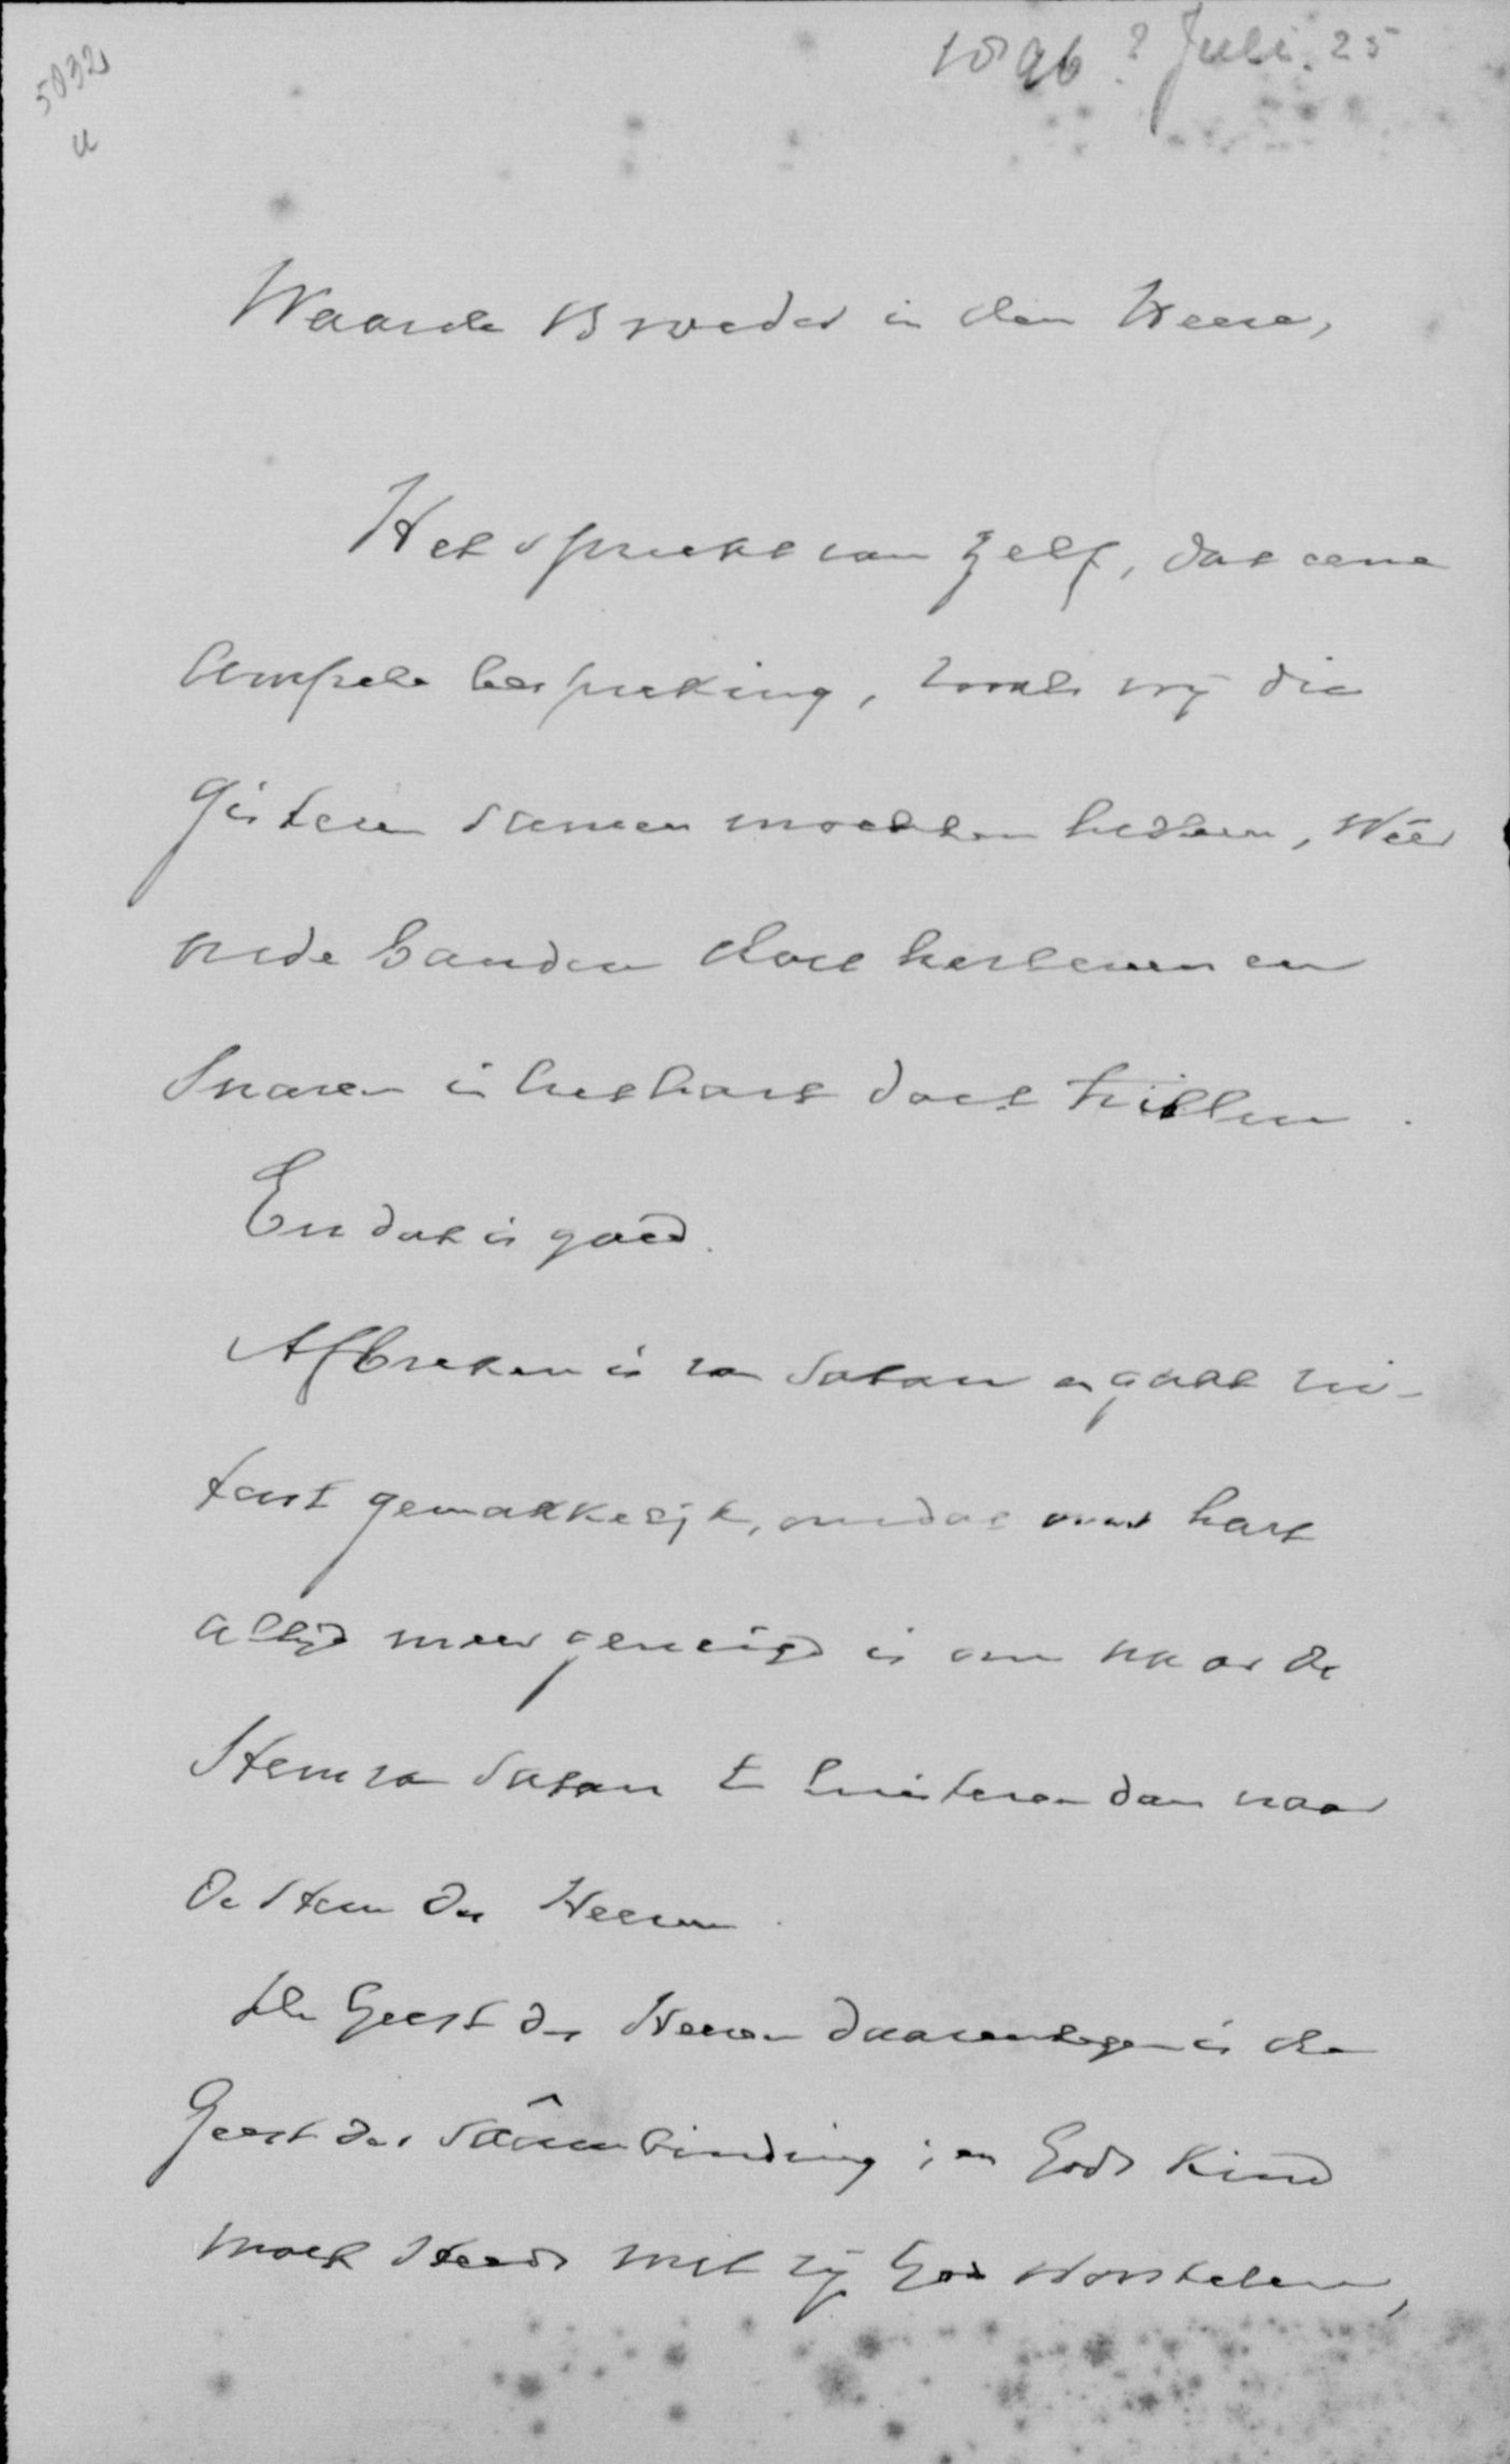 5032
a
1896? Juli. 25
Waarde Broeder in den Heere,
Het spreekt van zelf, dat eene
ampele bespreking, zooals wij die
gisteren samen mochten hebben, weêr
oude banden doet herleven en
snaren in het hart doet trillen.
En dat is goed.
Afbreken is van Satan en gaat
gemakkelijk, omdat ons hart
altijd meer geneigd is om naar de
Stem van Satan te luisteren dan naar
de Stem des Heeren.
De Geest des Heeren daarentegen is de
Geest der saâmbinding; en Gods kind
moet steeds met zijn God worstelen,